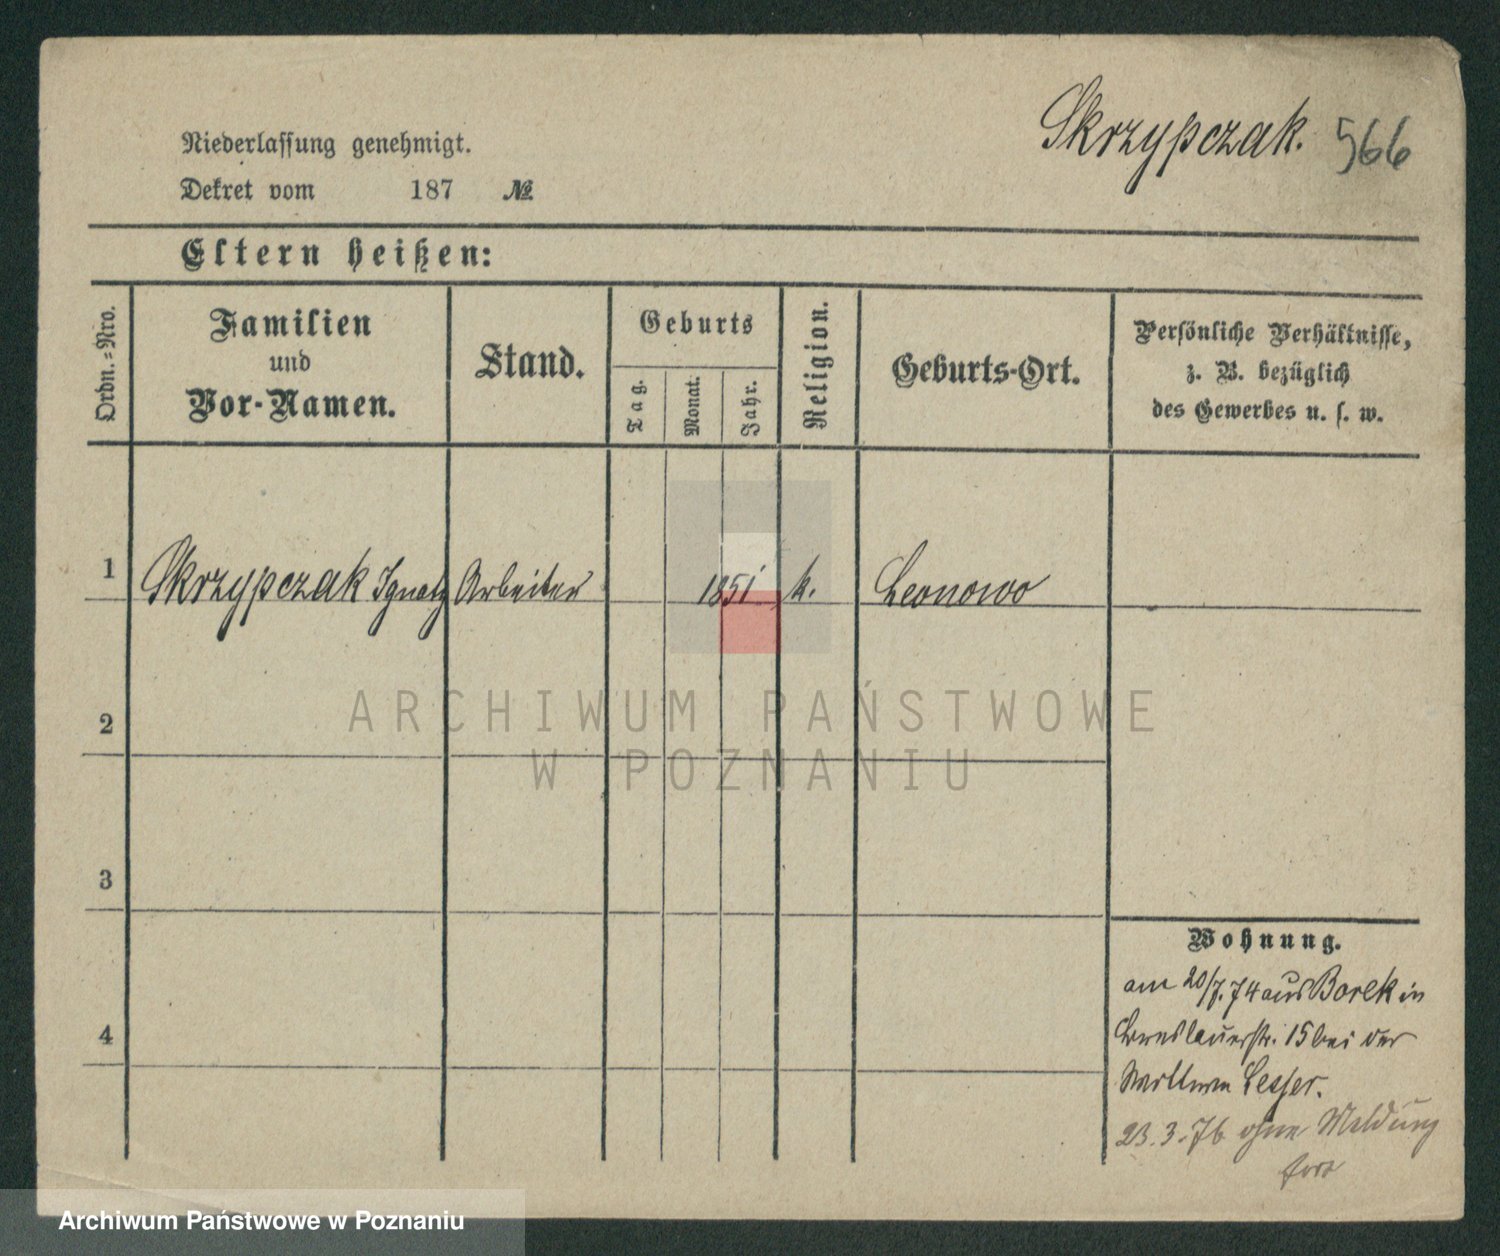 Skrzypczak. 566
Niederlassung genehmigt.
Dekret vom 187 №
Eltern heißen:
Ordn.-Nro.
Familien
und
Vor-Namen.
Stand.
Geburts
Tag.
Monat.
Jahr.
Religion.
Geburts-Ort.
Persönliche Verhältnisse,
z. B. bezüglich
des Gewerbes u. s. w.
1 Skrzypczak Ignatz Arbeiter 1851 k. Leonowo
ARCHIWUM PAŃSTWOWE
W POZNANIU
2
3
4
Wohnung.
am 20/7.74 aus Borek in
Breslauerstr. 15 bei der
Wittwe Lesser.
23.3.76 ohne Meldung
fort
Archiwum Państwowe w Poznaniu